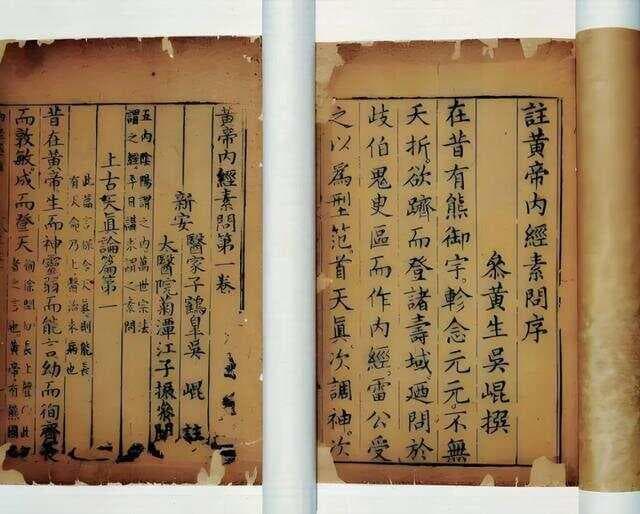 註黃帝內經素問序
叅黃生吳崐撰
在昔有熊御宇。軫念元元。不無
夭折。欲躋而登諸壽域。廼問於
歧伯鬼臾區而作內經。雷公受
之以爲型范。首天眞。次調神。次
黃帝內經素問第一卷
新安 醫家子鶴皐吳 崐 註
太醫院菊潭江子振叅閱
五內陰陽謂之內萬世宗法
謂之經平日講求謂之素問
上古天眞論篇第一
此篇言保合天眞則能長
有天命乃上醫治未病也
昔在黃帝生而神靈弱而能言幼而徇齊長
而敦敏成而登天